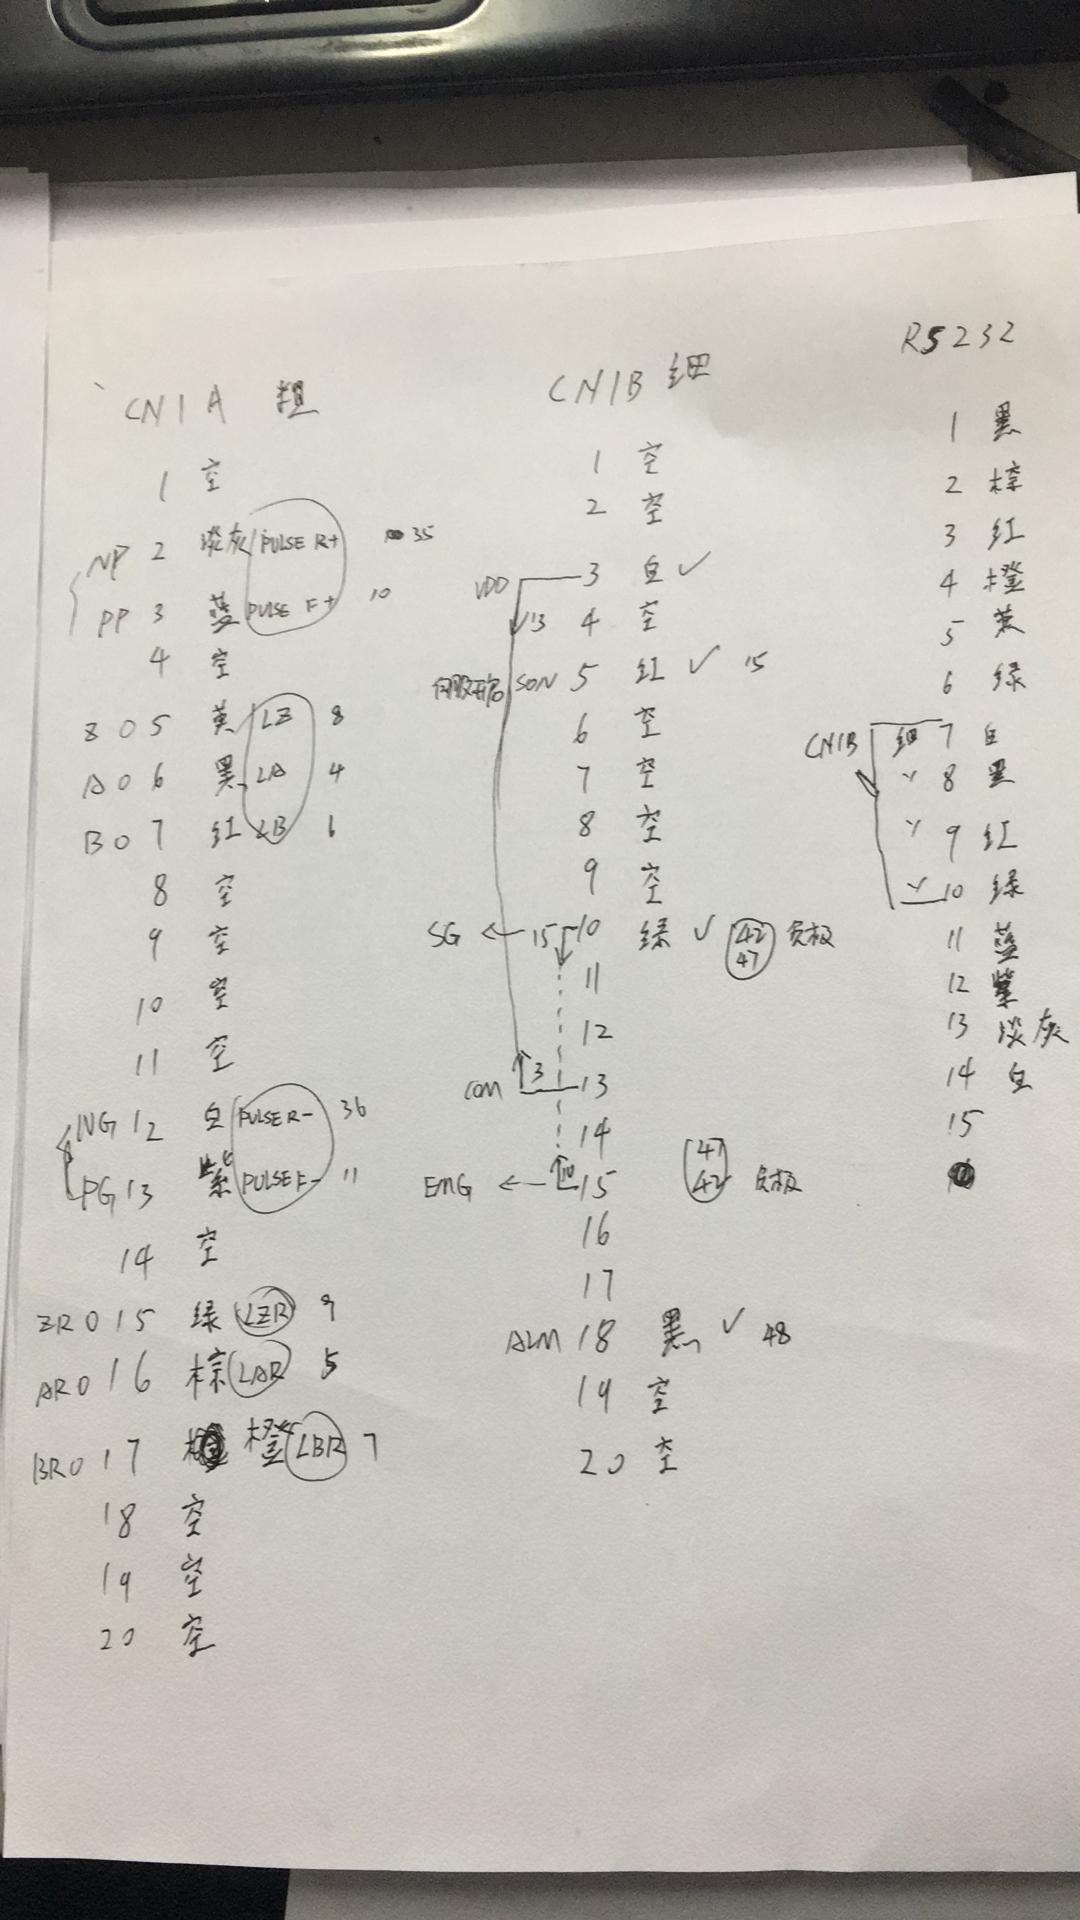 CN1A 粗
1 空
NP 2 淡灰 PULSE R+ 35
PP 3 蓝 PULSE F+ 10
4 空
ZO 5 黄 LZ 8
AO 6 黑 LA 4
BO 7 红 LB 6
8 空
9 空
10 空
11 空
NG 12 白 PULSE R- 36
PG 13 紫 PULSE F- 11
14 空
ZRO 15 绿 LZR 9
ARO 16 棕 LAR 5
BRO 17 橙 LBR 7
18 空
19 空
20 空
CN1B 细
1 空
2 空
VDD 3 白 ✓
13 4 空
伺服开启 SON 5 红 ✓ 15
6 空
7 空
8 空
9 空
SG ← 15 10 绿 ✓ 42 负极
47
11
12
COM 3 13
14
47
EMG ← 10 15 42 负极
16
17
ALM 18 黑 ✓ 48
19 空
20 空
RS232
1 黑
2 棕
3 红
4 橙
5 黄
6 绿
CN1B 细 7 白
8 黑
9 红
10 绿
11 蓝
12 紫
13 淡灰
14 白
15